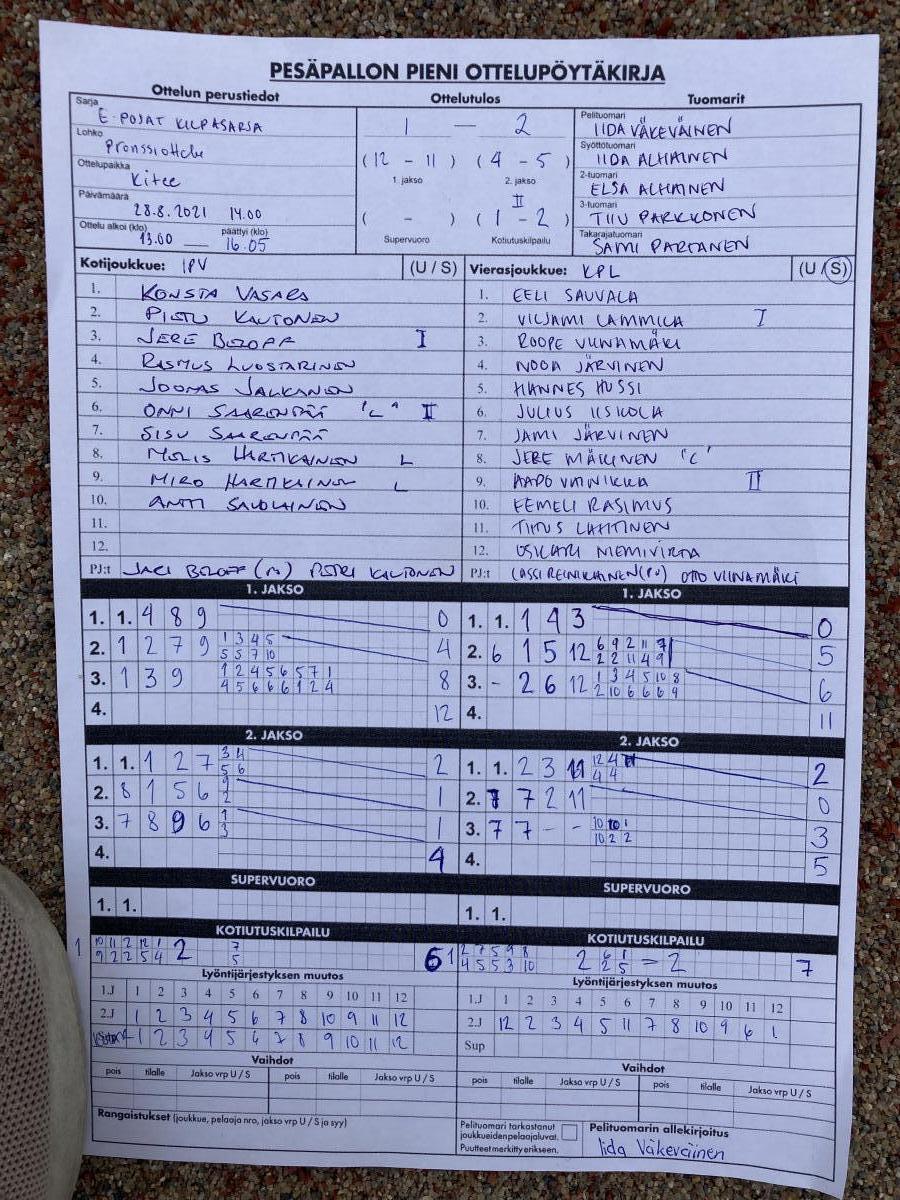 PESÄPALLON PIENI OTTELUPÖYTÄKIRJA
Ottelun perustiedot Ottelutulos Tuomarit
Sarja
E-POJAT KILPASARJA
Lohko
Pronssiottelu
Ottelupaikka
Kitee
Päivämäärä
28.8.2021 14.00
Ottelu alkoi (klo) päättyi (klo)
13.00 — 16.05
1 — 2
(12 - 11) (4 - 5)
1. jakso 2. jakso
II
( - ) (1 - 2)
Supervuoro Kotiutuskilpailu
Pelituomari
IIDA VÄKEVÄINEN
Syöttötuomari
IIDA ALHAINEN
2-tuomari
ELSA ALHAINEN
3-tuomari
TIIU PARKKONEN
Takarajatuomari
SAMI PARTANEN
Kotijoukkue: IPV (U / S)
1. KONSTA VASARA
2. PIETU KAUTONEN
3. JERE BELOFF I
4. RASMUS LUOSTARINEN
5. JOONAS JALKANEN
6. ONNI SAARENPÄÄ "C" II
7. SISU SAARENPÄÄ
8. HARTIKAINEN L
9. MIRO HARTIKAINEN L
10. ANTTI SAVOLAINEN
11.
12.
PJ:t JARI BELOFF (PJ) PETRI KAUTONEN
Vierasjoukkue: KPL (U / S)
1. EELI SAUVALA
2. VILJAMI LAMMILA I
3. ROOPE VIINAMÄKI
4. NOOA JÄRVINEN
5. HANNES HUSSI
6. JULIUS IISKOLA
7. JAMI JÄRVINEN
8. JERE MÄKINEN "C"
9. AAPO VAINIKKA II
10. EEMELI RASIMUS
11. TIITUS LAHTINEN
12. OSKARI NIEMIVIRTA
PJ:t LASSI REINIKAINEN (PJ) OTTO VIINAMÄKI
1. JAKSO
1. 1. 4 8 9 0
2. 1 2 7 9 1 3 4 5 4
5 5 7 10
3. 1 3 9 1 2 4 5 6 5 7 1 8
4 5 6 6 6 1 2 4
4. 12
1. JAKSO
1. 1. 1 4 3 0
2. 6 1 5 12 6 9 2 11 7 5
2 2 11 4 9
3. - 2 6 12 1 3 4 5 10 8 6
2 10 6 6 6 9
4. 11
2. JAKSO
1. 1. 1 2 7 3 4 2
5 6
2. 8 1 5 6 1
2
3. 7 8 9 6 1 1
3
4. 4
2. JAKSO
1. 1. 2 3 11 12 4 2
4 4
2. 7 7 2 11 0
3. 7 7 - - 10 10 1 3
10 2 2
4. 5
SUPERVUORO
1. 1.
SUPERVUORO
1. 1.
KOTIUTUSKILPAILU
1 10 11 2 12 1 2 7 6
9 2 2 5 4 5
KOTIUTUSKILPAILU
1 2 7 5 9 8 2 6 1 - 2 7
4 5 5 3 10 2 5
Lyöntijärjestyksen muutos
1.J 1 2 3 4 5 6 7 8 9 10 11 12
2.J 1 2 3 4 5 6 7 8 10 9 11 12
1 2 3 4 5 6 7 8 9 10 11 12
Lyöntijärjestyksen muutos
1.J 1 2 3 4 5 6 7 8 9 10 11 12
2.J 12 2 3 4 5 11 7 8 10 9 6 1
Sup
Vaihdot
pois tilalle Jakso vrp U / S pois tilalle Jakso vrp U / S
Vaihdot
pois tilalle Jakso vrp U / S pois tilalle Jakso vrp U / S
Rangaistukset (joukkue, pelaaja nro, jakso vrp U / S ja syy)
Pelituomari tarkastanut
joukkueidenpelaajaluvat.
Puutteet merkitty erikseen.
Pelituomarin allekirjoitus
Iida Väkeväinen